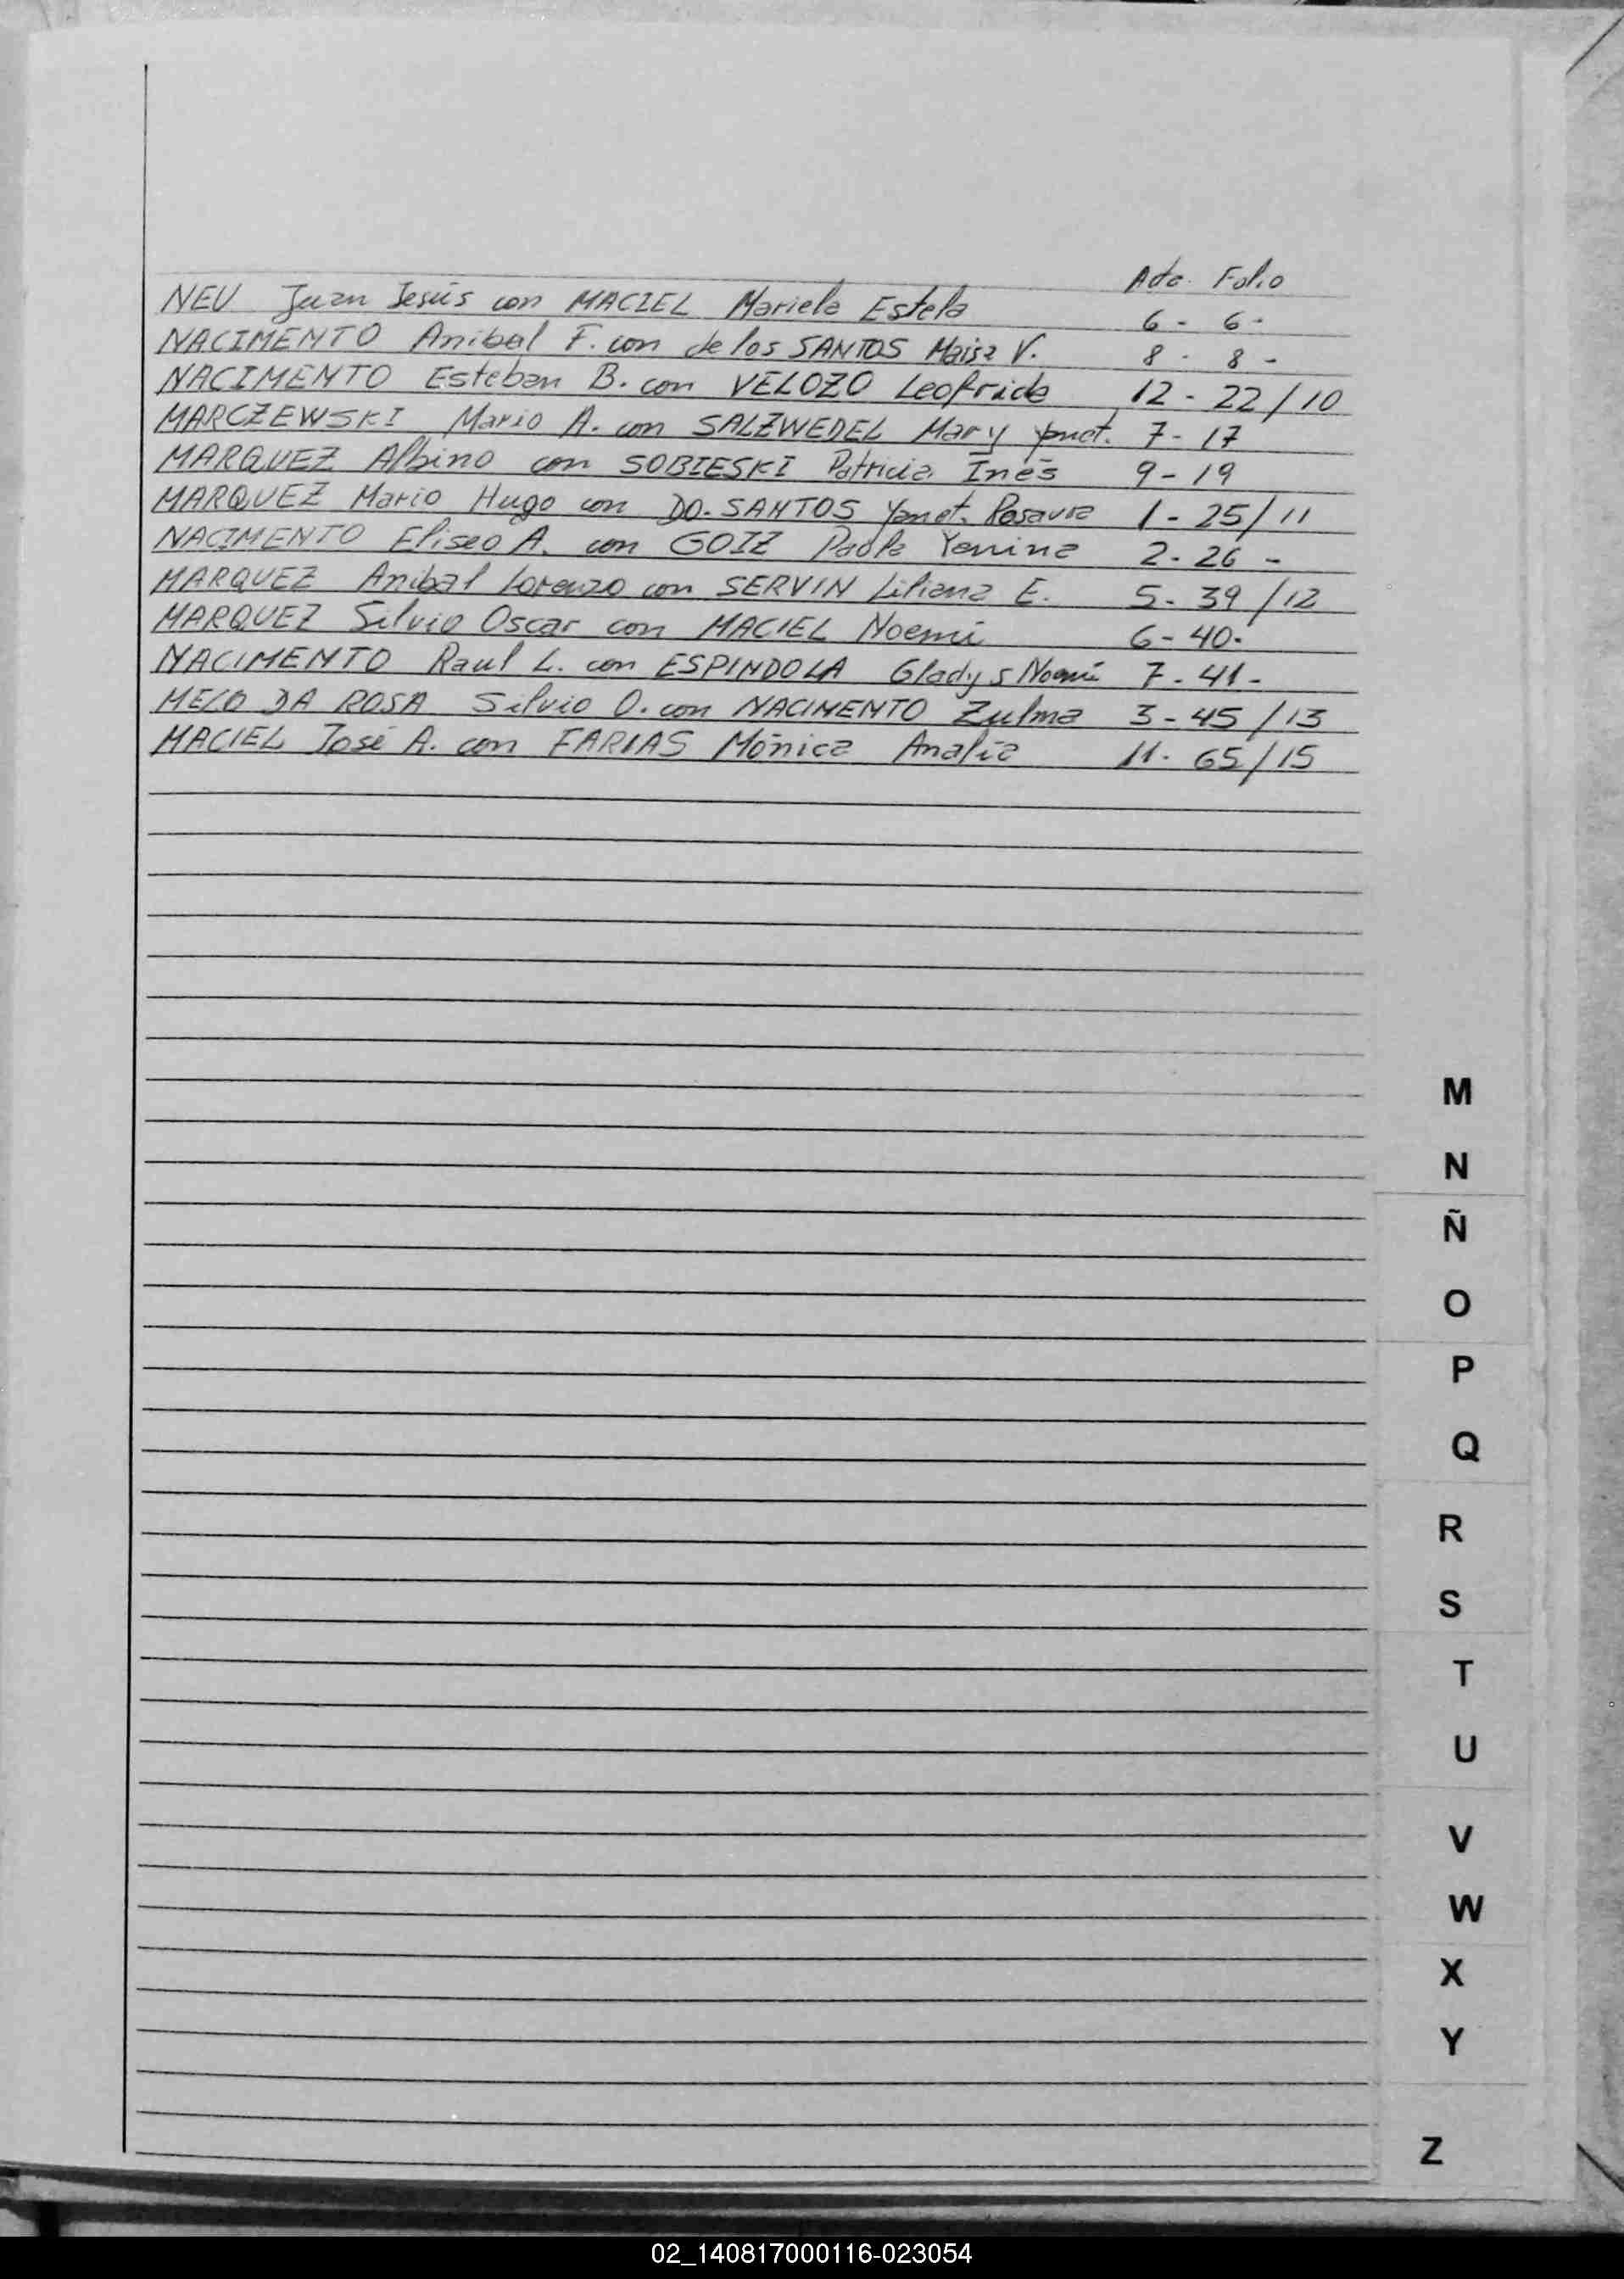 Acta. Folio
NEU Juan Jesús con MACIEL Mariela Estela 6 - 6 -
NACIMENTO Anibal F. con de los SANTOS Maisa V. 8 - 8 -
NACIMENTO Esteban B. con VELOZO Leofrida 12 - 22/10
MARCZEWSKI Mario A. con SALZWEDEL Mary Ynet. 7 - 17
MARQUEZ Albino con SOBIESKI Patricia Inés 9 - 19
MARQUEZ Mario Hugo con DO. SANTOS Yanet. Rosaura 1 - 25/11
NACIMENTO Eliseo A. con GOIZ Paola Yanina 2 - 26 -
MARQUEZ Anibal Lorenzo con SERVIN Liliana E. 5 - 39/12
MARQUEZ Silvio Oscar con MACIEL Noemi 6 - 40 -
NACIMENTO Raul L. con ESPINDOLA Gladys Noemí 7 - 41 -
MELO DA ROSA Silvio O. con NACIMENTO Zulma 3 - 45/13
MACIEL José A. con FARIAS Mónica Analía 11 - 65/15
M
N
Ñ
O
P
Q
R
S
T
U
V
W
X
Y
Z
02_140817000116-023054